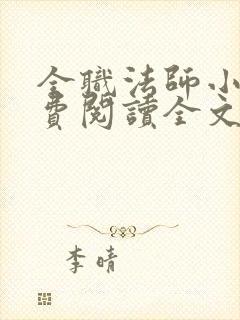 全職法師小
費閱讀全文
李晴